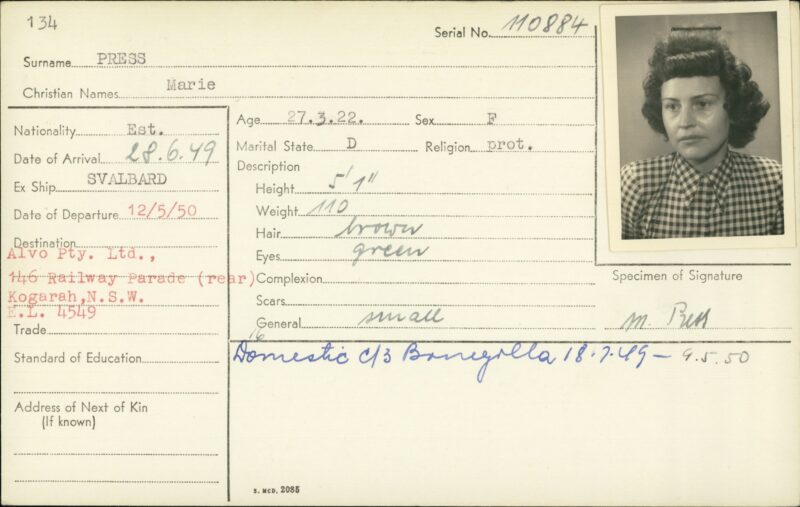 134
Serial No. 110884
Surname PRESS
Christian Names Marie
Nationality Est.
Date of Arrival 28.6.49
Ex Ship SVALBARD
Date of Departure 12/5/50
Destination
Alvo Pty. Ltd.,
146 Railway Parade (rear)
Kogarah, N.S.W.
E.L. 4549
Trade
Standard of Education
Address of Next of Kin
(If known)
Age 27.3.22. Sex F
Marital State D Religion prot.
Description
Height 5' 1"
Weight 110
Hair brown
Eyes green
Complexion
Scars
General small
16
Domestic C/3 Bonegilla 18.7.49 - 9.5.50
Specimen of Signature
M. Press
S. MCD. 2085